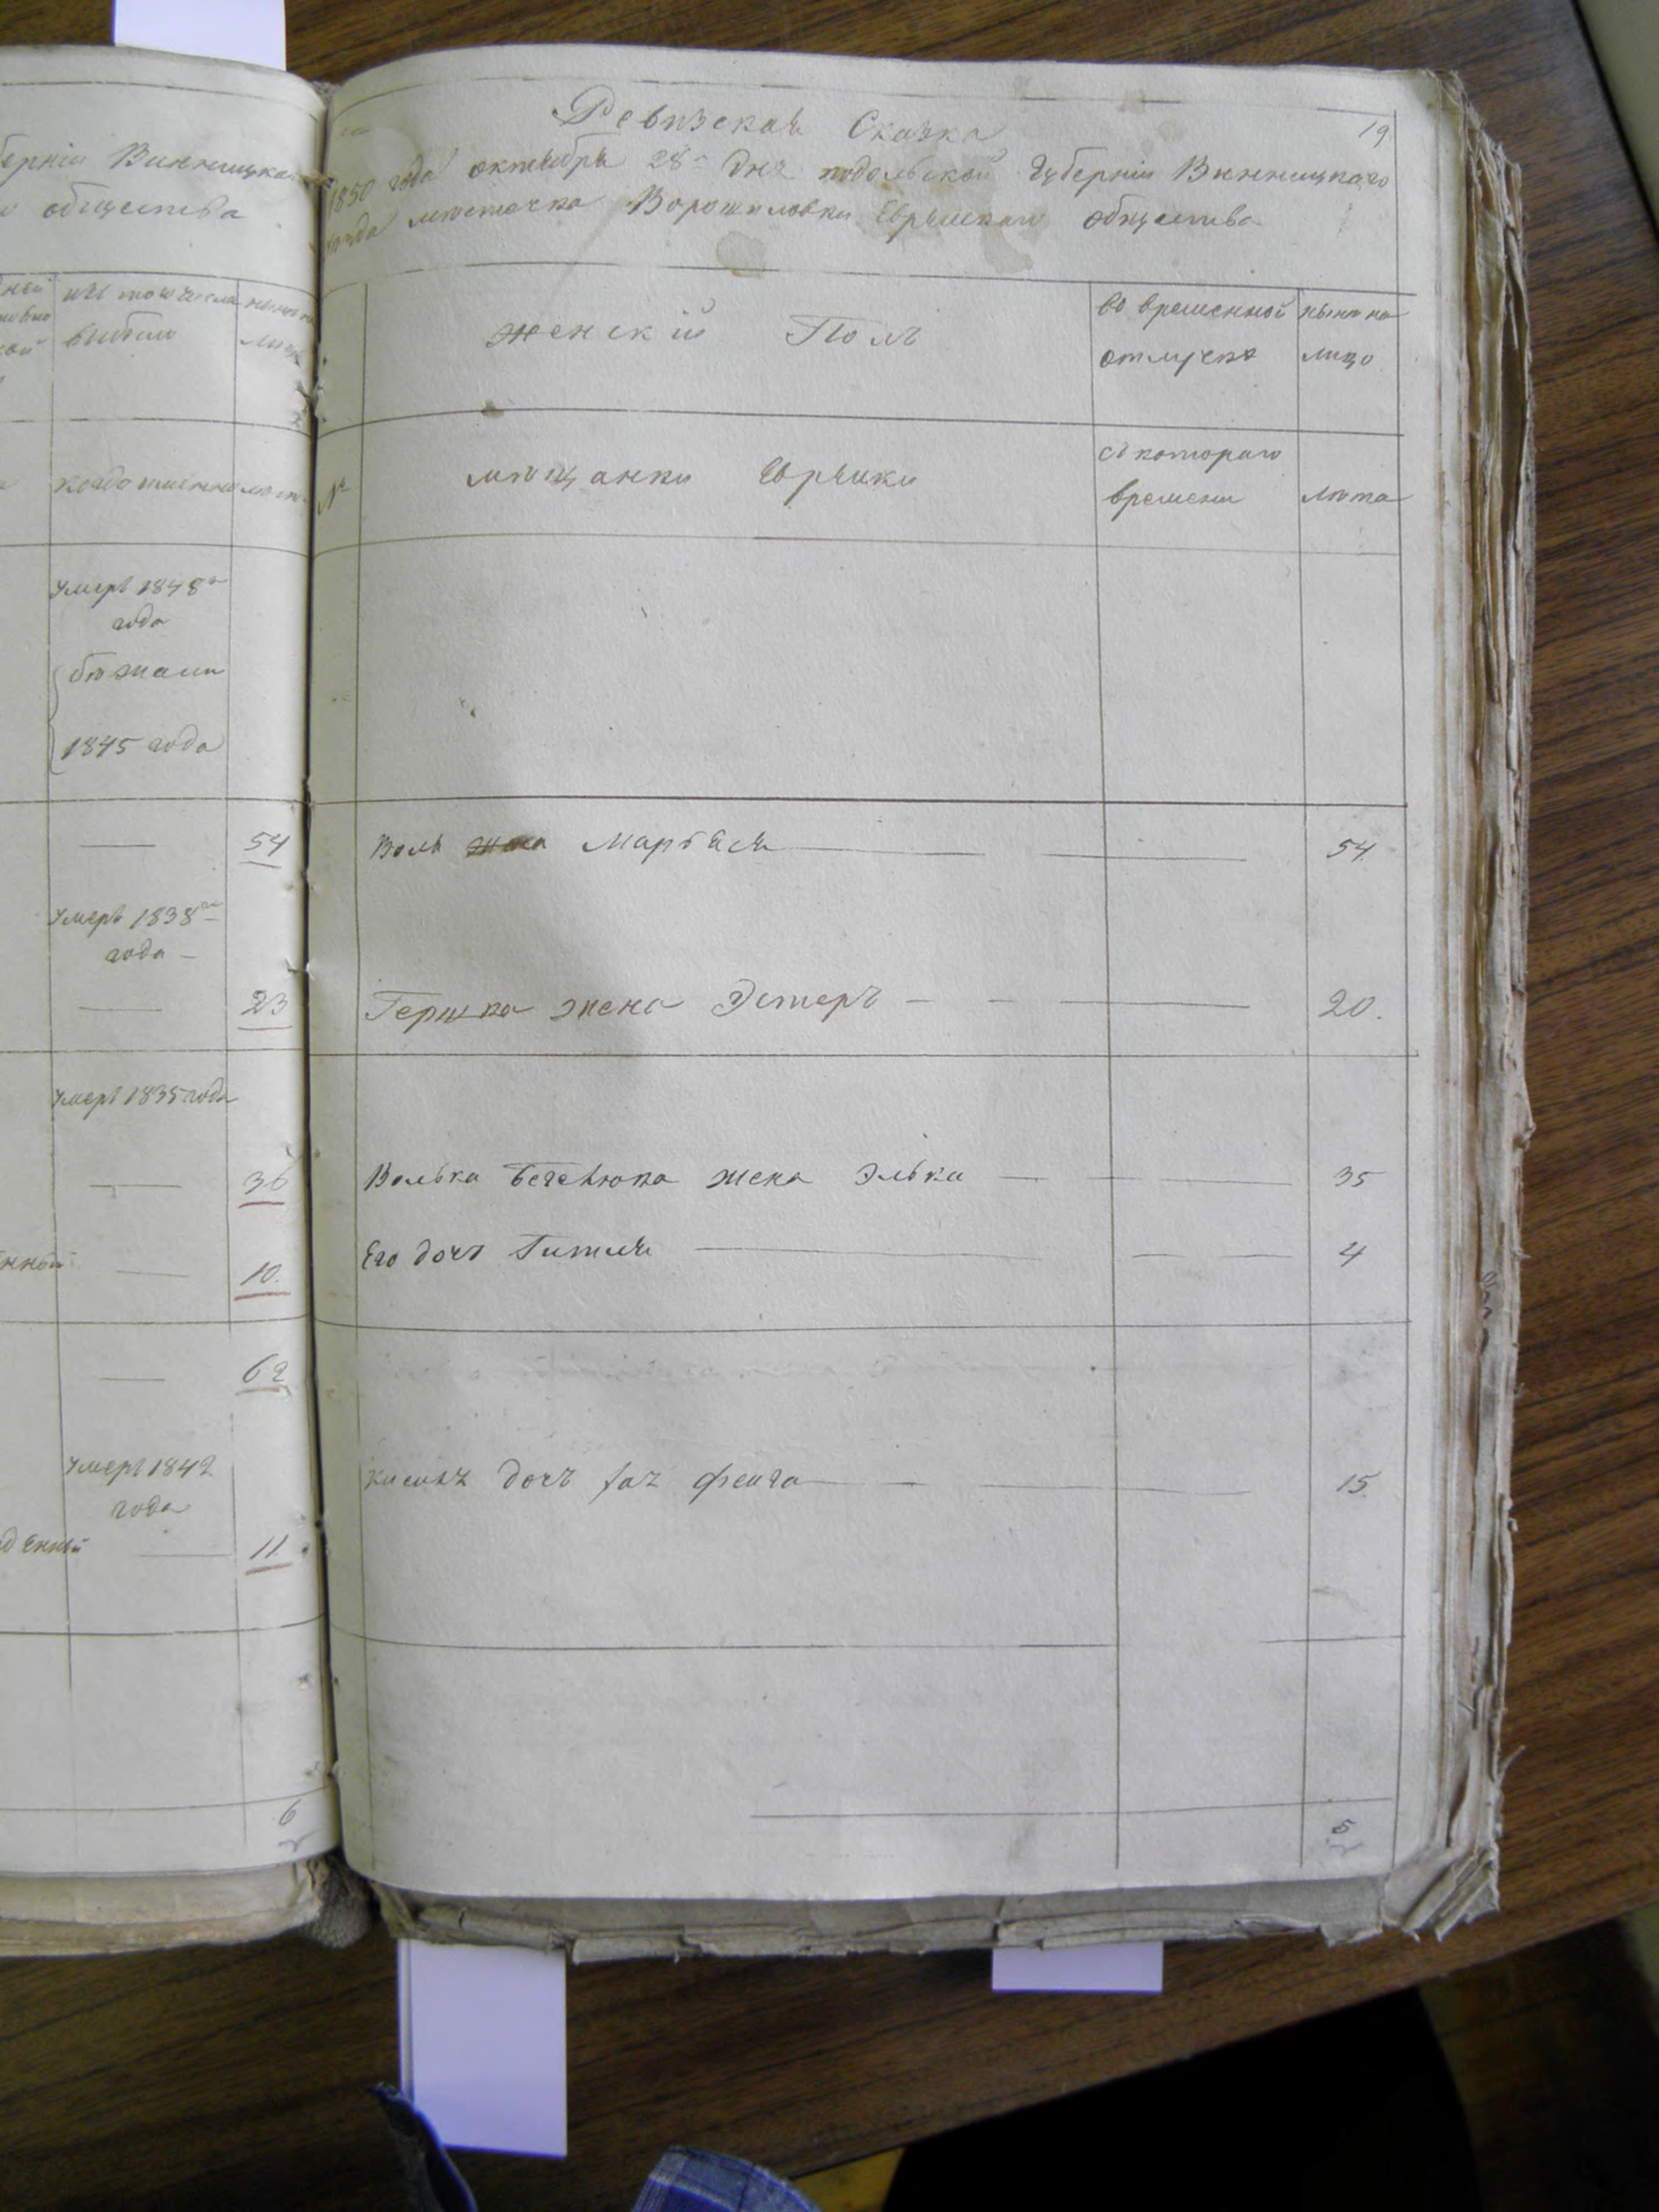 берніи Винницка
о общества
изъ того числа
выбыло
когда именно
умеръ 1848го
года
бѣжали
1845 года
54
умеръ 1838го
года
23
умеръ 1835 года
36
10.
62
умеръ 1842
года
11.
6
19
Ревизская Сказка
1850 года октября 28го дня подольской Губерніи Винницкаго
уѣзда мѣстечка Ворошиловки Еврейскаго общества
женскій Полъ
во временной
отлучкѣ
нынѣ на
лицо
№
мѣщанки Еврейки
съ котораго
времени
лѣта
Воля жена Марьяся 54.
Гершка жена Эстеръ 20.
Волька жена Элька 35
Его дочь Гитля 4
дочь Фейга 15.
5